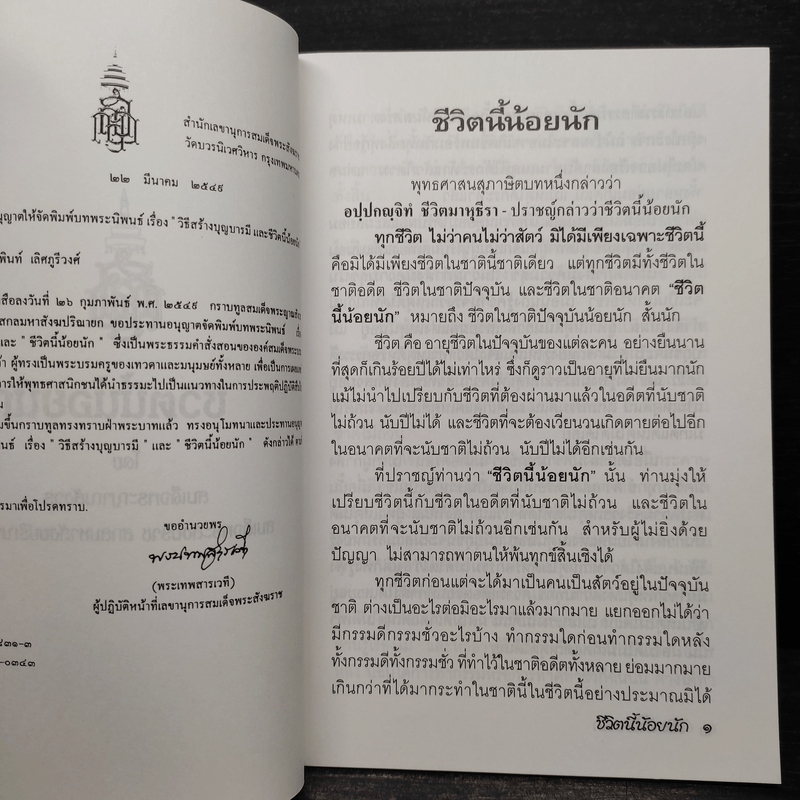 สำนักเลขานุการสมเด็จพระสังฆราช
วัดบวรนิเวศวิหาร กรุงเทพมหานคร
๒๒ มีนาคม ๒๕๔๙
ญาตให้จัดพิมพ์บทพระนิพนธ์ เรื่อง " วิธีสร้างบุญบารมี และชีวิตนี้น้อยนัก
พินท์ เลิศภูรีวงศ์
สือลงวันที่ ๒๖ กุมภาพันธ์ พ.ศ. ๒๕๔๙ กราบทูลสมเด็จพระญาณสัง
สกลมหาสังฆปริณายก ขอประทานอนุญาตจัดพิมพ์บทพระนิพนธ์
และ " ชีวิตนี้น้อยนัก " ซึ่งเป็นพระธรรมคำสั่งสอนขององค์สมเด็จพระ
ผู้ทรงเป็นพระบรมครูของเทวดาและมนุษย์ทั้งหลาย เพื่อเป็นการ
การให้พุทธศาสนิกชนได้นำธรรมะไปเป็นแนวทางในการประพฤติปฏิบัติ
น
ขึ้นกราบทูลทรงทราบฝ่าพระบาทแล้ว ทรงอนุโมทนาและประทาน
พนธ์ เรื่อง " วิธีสร้างบุญบารมี " และ " ชีวิตนี้น้อยนัก " ดังกล่าวได้
รมาเพื่อโปรดทราบ.
ขออำนวยพร
(พระเทพสารเวที)
ผู้ปฏิบัติหน้าที่เลขานุการสมเด็จพระสังฆราช
๘๓๑-๓
-๐๓๔๓
ชีวิตนี้น้อยนัก
พุทธศาสนสุภาษิตบทหนึ่งกล่าวว่า
อปฺปกญฺจิทํ ชีวิตมาหุธีรา - ปราชญ์กล่าวว่าชีวิตนี้น้อยนัก
ทุกชีวิต ไม่ว่าคนไม่ว่าสัตว์ มิได้มีเพียงเฉพาะชีวิตนี้
คือมิได้มีเพียงชีวิตในชาตินี้ชาติเดียว แต่ทุกชีวิตมีทั้งชีวิตใน
ชาติอดีต ชีวิตในชาติปัจจุบัน และชีวิตในชาติอนาคต "ชีวิต
นี้น้อยนัก" หมายถึง ชีวิตในชาติปัจจุบันน้อยนัก สั้นนัก
ชีวิต คือ อายุชีวิตในปัจจุบันของแต่ละคน อย่างยืนนาน
ที่สุดก็เกินร้อยปีได้ไม่เท่าไหร่ ซึ่งก็ดูราวเป็นอายุที่ไม่ยืนมากนัก
แม้ไม่นำไปเปรียบกับชีวิตที่ต้องผ่านมาแล้วในอดีตที่นับชาติ
ไม่ถ้วน นับปีไม่ได้ และชีวิตที่จะต้องเวียนวนเกิดตายต่อไปอีก
ในอนาคตที่จะนับชาติไม่ถ้วน นับปีไม่ได้อีกเช่นกัน
ที่ปราชญ์ท่านว่า "ชีวิตนี้น้อยนัก" นั้น ท่านมุ่งให้
เปรียบชีวิตนี้กับชีวิตในอดีตที่นับชาติไม่ถ้วน และชีวิตใน
อนาคตที่จะนับชาติไม่ถ้วนอีกเช่นกัน สำหรับผู้ไม่ยิ่งด้วย
ปัญญา ไม่สามารถพาตนให้พ้นทุกข์สิ้นเชิงได้
ทุกชีวิตก่อนแต่จะได้มาเป็นคนเป็นสัตว์อยู่ในปัจจุบัน
ชาติ ต่างเป็นอะไรต่อมิอะไรมาแล้วมากมาย แยกออกไม่ได้ว่า
มีกรรมดีกรรมชั่วอะไรบ้าง ทำกรรมใดก่อนทำกรรมใดหลัง
ทั้งกรรมดีทั้งกรรมชั่ว ที่ทำไว้ในชาติอดีตทั้งหลาย ย่อมมากมาย
เกินกว่าที่ได้มากระทำในชาตินี้ในชีวิตนี้อย่างประมาณมิได้
ชีวิตนี้น้อยนัก ๑